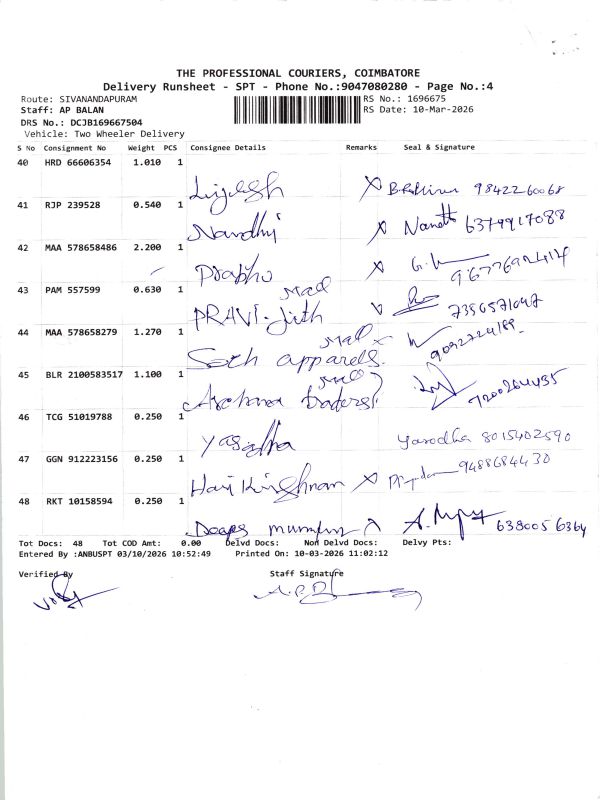 THE PROFESSIONAL COURIERS, COIMBATORE
Delivery Runsheet - SPT - Phone No.:9047080280 - Page No.:4
Route: SIVANANDAPURAM RS No.: 1696675
Staff: AP BALAN RS Date: 10-Mar-2026
DRS No.: DCJB169667504
Vehicle: Two Wheeler Delivery
S No Consignment No Weight PCS Consignee Details Remarks Seal & Signature
40 HRD 66606354 1.010 1
9842260068
41 RJP 239528 0.540 1
Nandhi 6379917088
42 MAA 578658486 2.200 1
Prabhu
43 PAM 557599 0.630 1
PRAVI-Jith 7356571047
44 MAA 578658279 1.270 1
Seth apparels. 9092724189
45 BLR 2100583517 1.100 1
Archana traders 7200264435
46 TCG 51019788 0.250 1
Yasodha Yasodha 8015402590
47 GGN 912223156 0.250 1
Hari Krishnan 9488684430
48 RKT 10158594 0.250 1
6380056364
Tot Docs: 48 Tot COD Amt: 0.00 Delvd Docs: Non Delvd Docs: Delvy Pts:
Entered By :ANBUSPT 03/10/2026 10:52:49 Printed On: 10-03-2026 11:02:12
Verified By Staff Signature